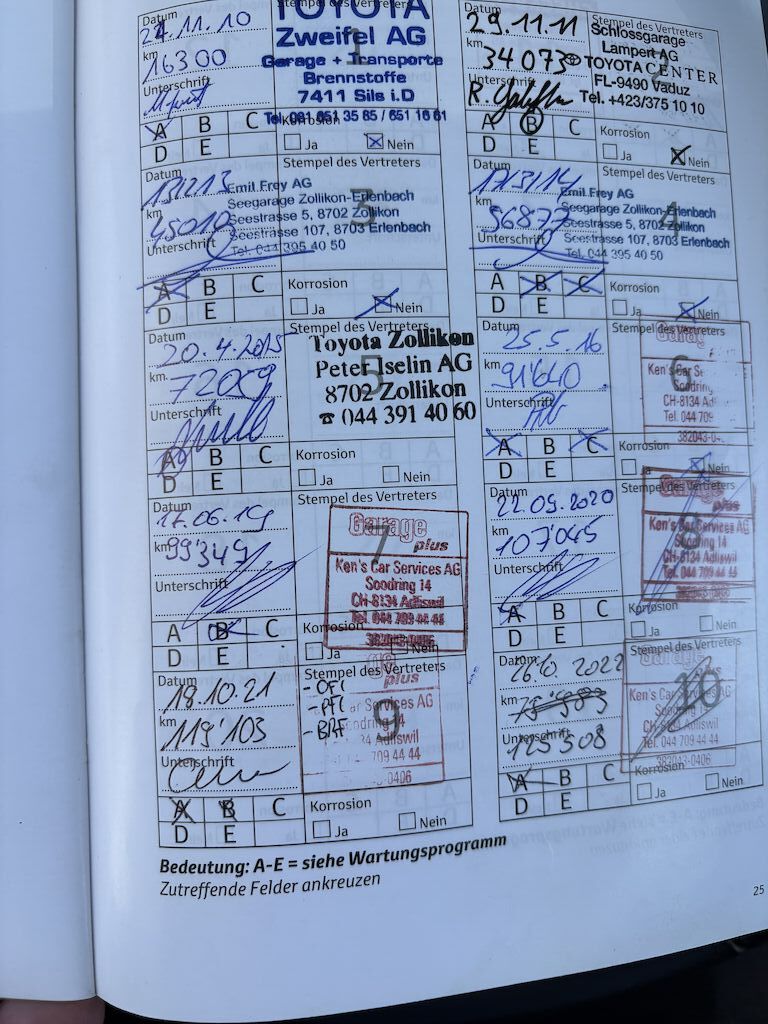 Datum
24.11.10
km
16300
Unterschrift
Stempel des Vertreters
TOYOTA
Zweifel AG
Garage + Transporte
Brennstoffe
7411 Sils i.D
Tel. 081 651 35 85 / 651 16 61
1
A B C
D E
Korrosion
Ja Nein
Datum
29.11.11
km
34073
Unterschrift
Stempel des Vertreters
Schlossgarage
Lampert AG
TOYOTA CENTER
FL-9490 Vaduz
Tel. +423/375 10 10
A B C
D E
Korrosion
Ja Nein
Datum
13/2/13
km
45010
Unterschrift
Stempel des Vertreters
Emil Frey AG
Seegarage Zollikon-Erlenbach
Seestrasse 5, 8702 Zollikon
Seestrasse 107, 8703 Erlenbach
Tel. 044 395 40 50
3
A B C
D E
Korrosion
Ja Nein
Datum
17/3/14
km
56877
Unterschrift
Stempel des Vertreters
Emil Frey AG
Seegarage Zollikon-Erlenbach
Seestrasse 5, 8702 Zollikon
Seestrasse 107, 8703 Erlenbach
Tel. 044 395 40 50
4
A B C
D E
Korrosion
Ja Nein
Datum
20.4.2015
km
72059
Unterschrift
Stempel des Vertreters
Toyota Zollikon
Peter Iselin AG
8702 Zollikon
☎ 044 391 40 60
5
A B C
D E
Korrosion
Ja Nein
Datum
25.5.16
km
91'640
Unterschrift
Stempel des Vertreters
Garag
Ken's Car Se
Soodring
CH-8134 Ad
Tel. 044 709
382043-0
6
A B C
D E
Korrosion
Ja Nein
Datum
17.06.19
km
99'349
Unterschrift
Stempel des Vertreters
Garage
plus
Ken's Car Services AG
Soodring 14
CH-8134 Adliswil
Tel. 044 709 44 44
382043-0406
7
A B C
D E
Korrosion
Ja Nein
Datum
22.09.2020
km
107'045
Unterschrift
Stempel des Vertreters
Garage
plus
Ken's Car Services AG
Soodring 14
CH-8134 Adliswil
Tel. 044 709 44 44
A B C
D E
Korrosion
Ja Nein
Datum
18.10.21
km
119'103
Unterschrift
Stempel des Vertreters
plus
- OFI
- PFI
- BRF
ar Services AG
ndring 14
34 Adliswil
709 44 44
0406
9
A B C
D E
Korrosion
Ja Nein
Datum
26.10.2022
km
Unterschrift
125308
Stempel des Vertreters
Garage
plus
Ken's Car Services AG
Soodring 14
CH-8134 Adliswil
Tel. 044 709 44 44
382043-0406
10
A B C
D E
Korrosion
Ja Nein
Bedeutung: A-E = siehe Wartungsprogramm
Zutreffende Felder ankreuzen
25